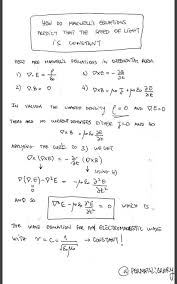 HOW DO MAXWELL'S EQUATIONS
PREDICT THAT THE SPEED OF LIGHT
IS CONSTANT
HERE ARE MAXWELL'S EQUATIONS IN DIFFERENTIAL FORM
1) ∇·E = ρ/ε₀ 3) ∇×E = -∂B/∂t
2) ∇·B = 0 4) ∇×B = μ₀J + μ₀ε₀ ∂E/∂t
IN VACUUM THE CHARGE DENSITY ρ = 0 AND ∇·E = 0
THERE ARE NO CURRENT DENSITIES EITHER J = 0 AND SO
∇×B = μ₀ε₀ ∂E/∂t
APPLYING THE CURL TO 3) WE GET
∇×(∇×E) = -∂/∂t (∇×B)
USING 4)
∇(∇·E) - ∇²E = -μ₀ε₀ ∂²E/∂t²
0
AND SO
∇²E - μ₀ε₀ ∂²E/∂t² = 0 WHICH IS
THE WAVE EQUATION FOR AN ELECTROMAGNETIC WAVE
WITH v = c = 1/√ε₀μ₀ → CONSTANT!